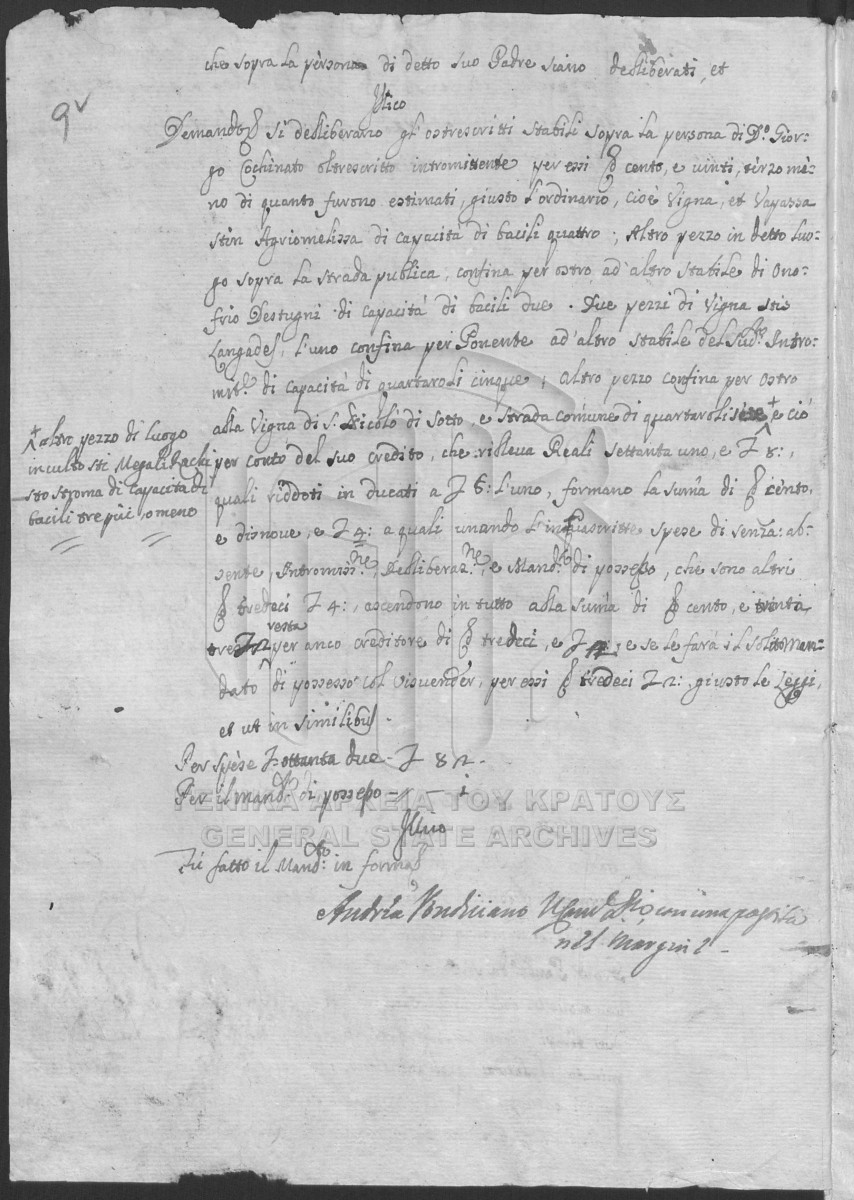 9v
che sopra la persona di detto suo Padre siano desliberati, et
Illico
Demandoß si desliberano gl'ostrescritti stabili sopra la persona di D.º Gior-
go Cochinato oltrescritto intromittente per essi ß cento, e vinti, terzo me-
no di quanto furono estimati, giusto l'ordinario, cioè Vigna, et Vapassa
stin Agriomelissa di capacità di bacili quattro; Altro pezzo in detto luo-
go sopra la strada publica, confina per ostro ad altro stabile di Ono-
frio Destugni di capacità di bacili due. Due pezzi di Vigna stis
Langades, l'uno confina per Ponente ad altro stabile del Sud.to Intro-
mit.e di capacità di quartaroli cinque; altro pezzo confina per ostro
alla Vigna di S. Nicolò di sotto, e strada comune di quartaroli + e ciò
per conto del suo credito, che rileva Reali settanta uno, e 8:,
quali riddoti in ducati a 6: l'uno, formano la suma di ß cento,
e disnove, e 4: a quali unando l'infrascritte spese di senza: ab-
sente, Intromiss.ne, Desliberaz.ne, e Mand.to di possesso, che sono altri
ß tredeci 4:, ascendono in tutto alla suma di ß cento, e trinta
tre 2 resta per anco creditore di ß tredeci, e 2: e se le farà il solito Man-
dato di possesso col visvender, per essi ß tredeci 2: giusto le Leggi,
et ut in similibus.
+ altro pezzo di luogo
inculto sti Megali
sto stroma di capacità di
bacili tre più, o meno
Per spese ottanta due - 82 -
Per il mand.to di possesso - - 1
Illico
Fù fatto il Mand.to in forma
Andrea Vondiciano con una postila
nel margine -
ΓΕΝΙΚΑ ΑΡΧΕΙΑ ΤΟΥ ΚΡΑΤΟΥΣ
GENERAL STATE ARCHIVES